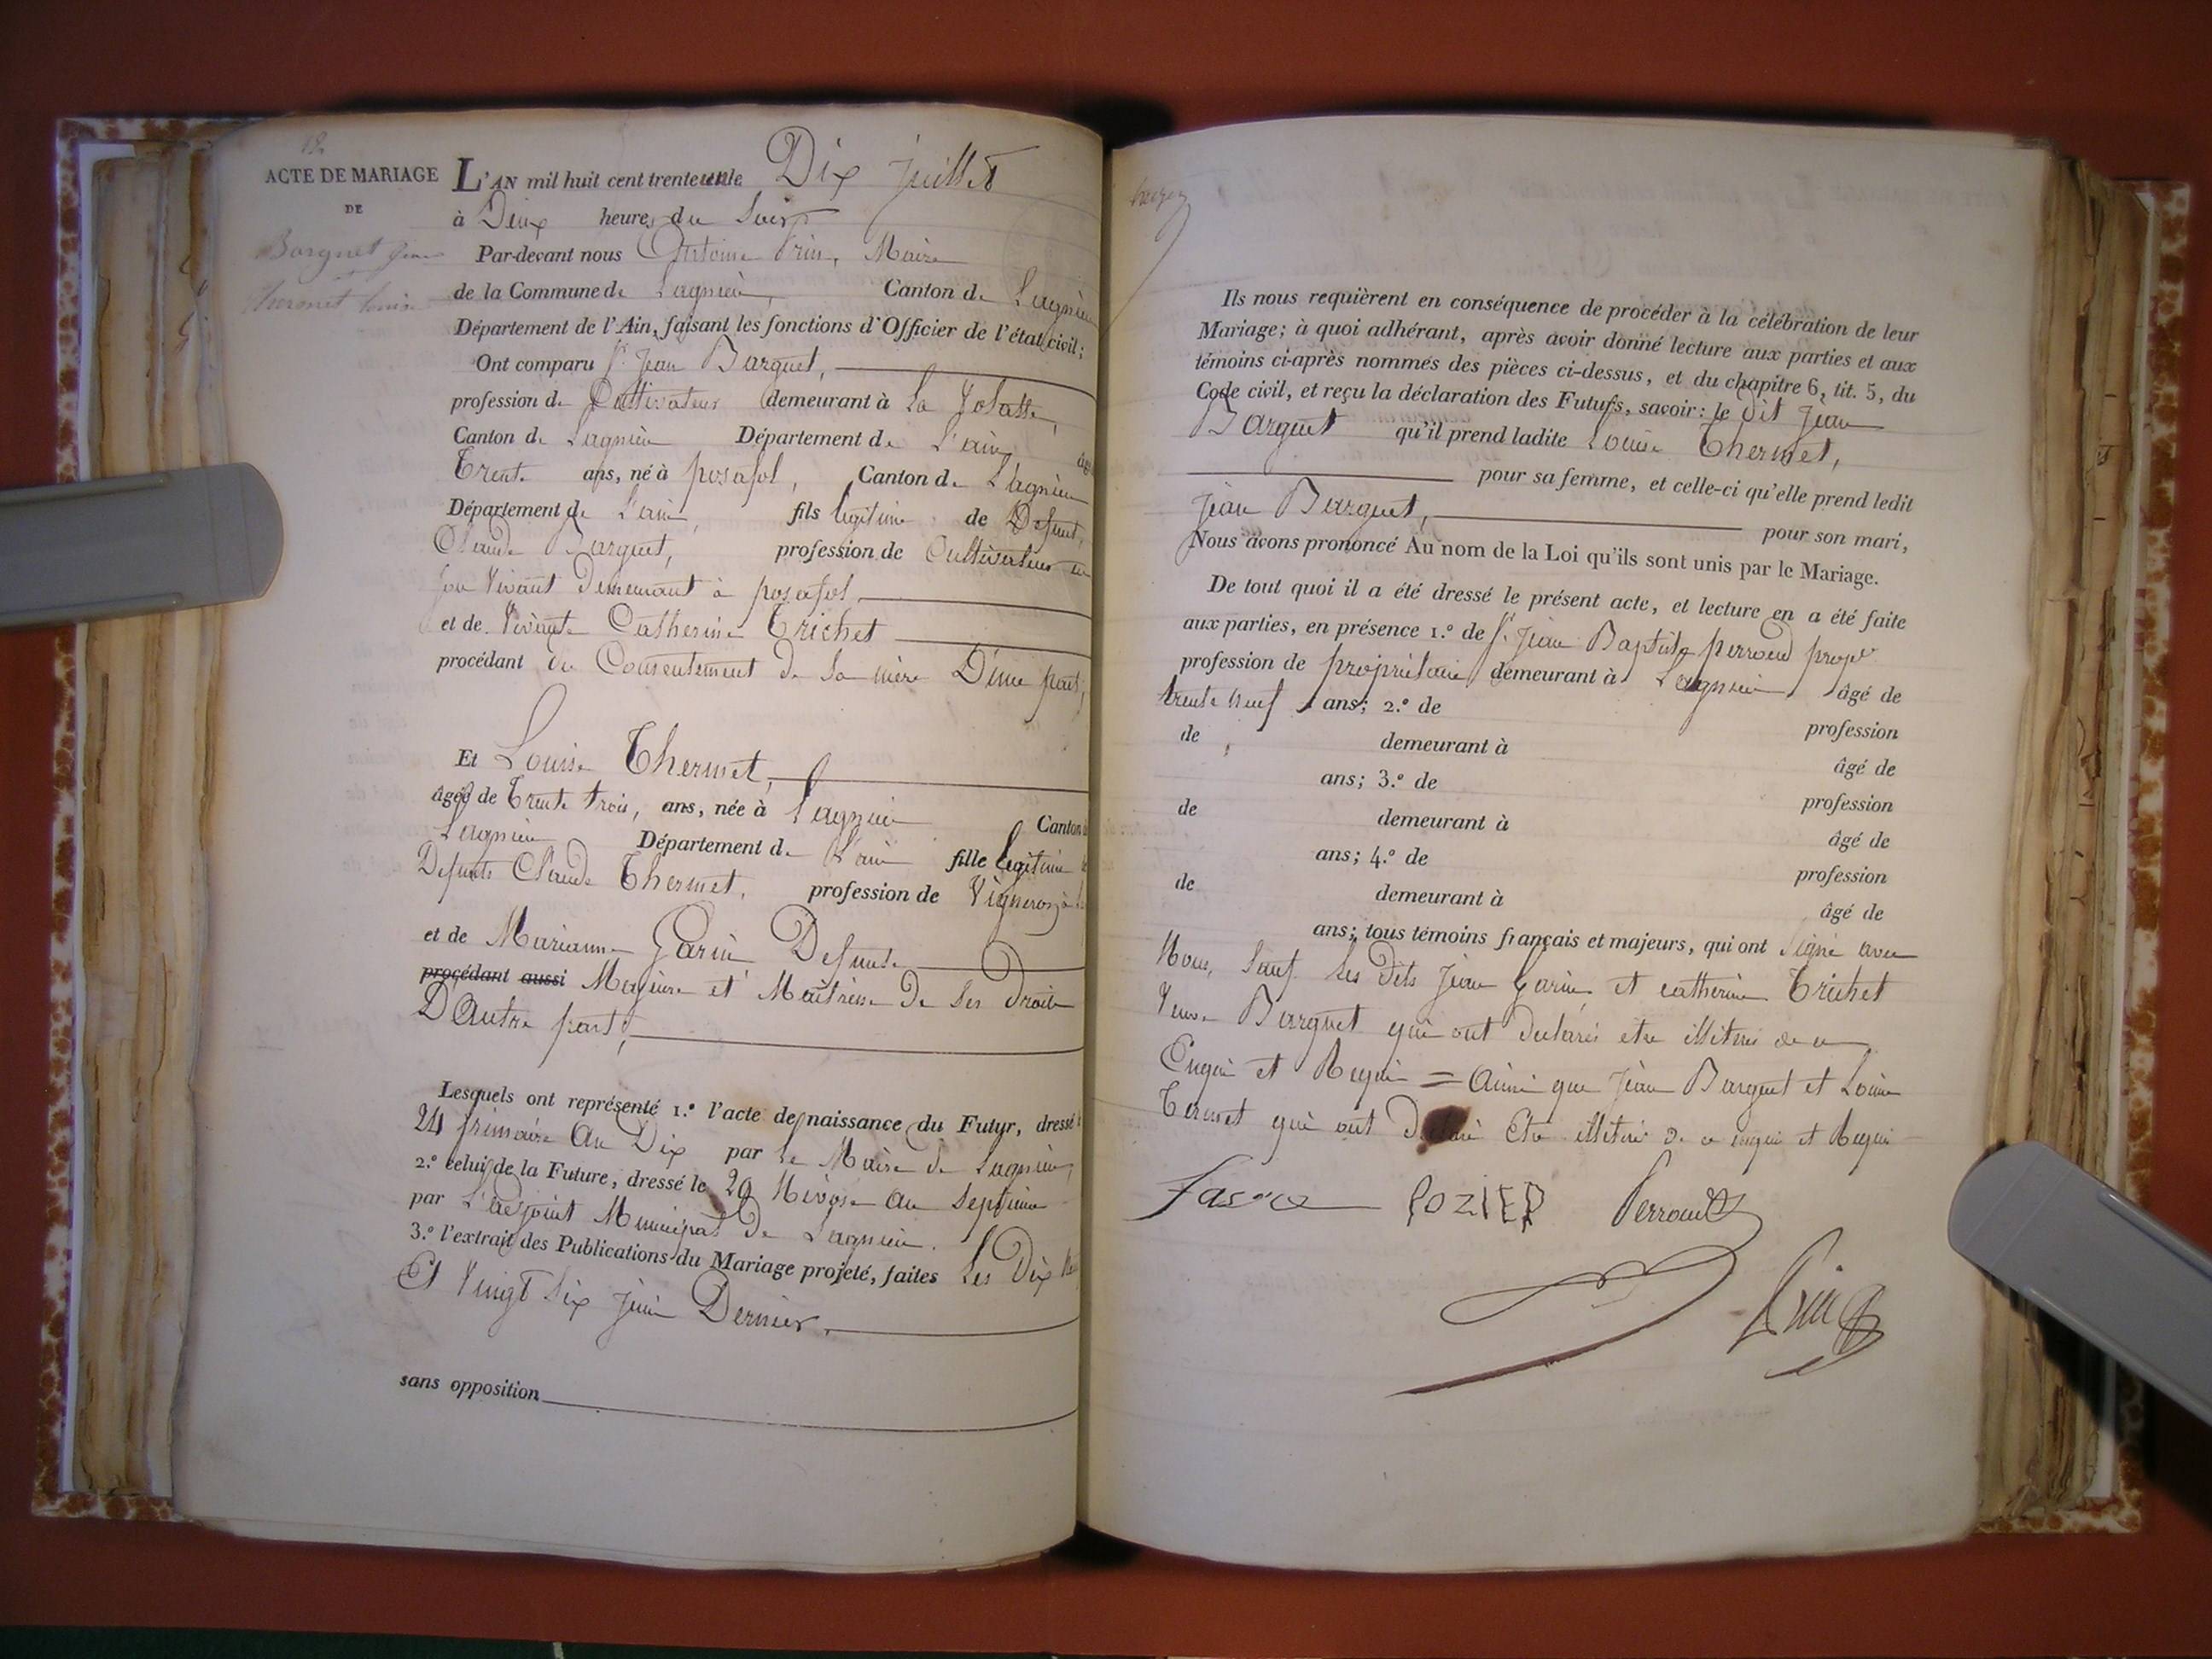 12
ACTE DE MARIAGE
DE
Barguet Jean
Thermet Louise
L'AN mil huit cent trente un le Dix juillet
à Deux heures du Soir
Par-devant nous Antoine Prin, Maire
de la Commune de Lagnieu, Canton de Lagnieu
Département de l'Ain, faisant les fonctions d'Officier de l'état civil;
Ont comparu Sr. Jean Barguet,
profession de Cultivateur demeurant à La
Canton de Lagnieu Département de L'ain, âgé
Trente ans, né à posafol, Canton de Lagnieu
Département de L'ain, fils legitime de Defunt
Claude Barguet, profession de Cultivateur en
son Vivant demeurant à posafol
et de Vivante Catherine Trichet
procédant du Consentement de Sa mère D'une part,
Et Louise Thermet,
âgée de Trente trois, ans, née à Lagnieu Canton
Lagnieu Département de L'ain fille legitime
Defunts Claude Thermet, profession de Vigneron
et de Marianne Garin Defunte
procédant aussi Majeure et Maitresse De Ses Droits
D'Autre part;
Lesquels ont représenté 1.º l'acte de naissance du Futur, dressé
24 frimaire An Dix par Le Maire de Lagnieu,
2.º celui de la Future, dressé le 29 Nivose An Septieme
par L'adjoint Municipal De Lagnieu.
3.º l'extrait des Publications du Mariage projeté, faites Les Dix
Et Vingt Six Juin Dernier,
sans opposition
Ils nous requièrent en conséquence de procéder à la célébration de leur
Mariage; à quoi adhérant, après avoir donné lecture aux parties et aux
témoins ci-après nommés des pièces ci-dessus, et du chapitre 6, tit. 5, du
Code civil, et reçu la déclaration des Futurs, savoir: le Dit Jean
Barguet qu'il prend ladite Louise Thermet,
pour sa femme, et celle-ci qu'elle prend ledit
Jean Barguet, pour son mari,
Nous avons prononcé Au nom de la Loi qu'ils sont unis par le Mariage.
De tout quoi il a été dressé le présent acte, et lecture en a été faite
aux parties, en présence 1.º de Sr. Jean Baptiste perroud
profession de propriétaire demeurant à Lagnieu âgé de
trente neuf ans; 2.º de profession
de demeurant à âgé de
ans; 3.º de profession
de demeurant à âgé de
ans; 4.º de profession
de demeurant à âgé de
ans; tous témoins français et majeurs, qui ont Signé avec
Nous, Sauf Les Dits Jean Garin, et catherine Trichet
Veuve Barguet qui ont declaré etre illitéré de ce
Enquis et Requis = Ainsi que Jean Barguet et Louise
Termet qui ont Etre illitéré de ce enquis et Requis
POZIER Perroud
Prin